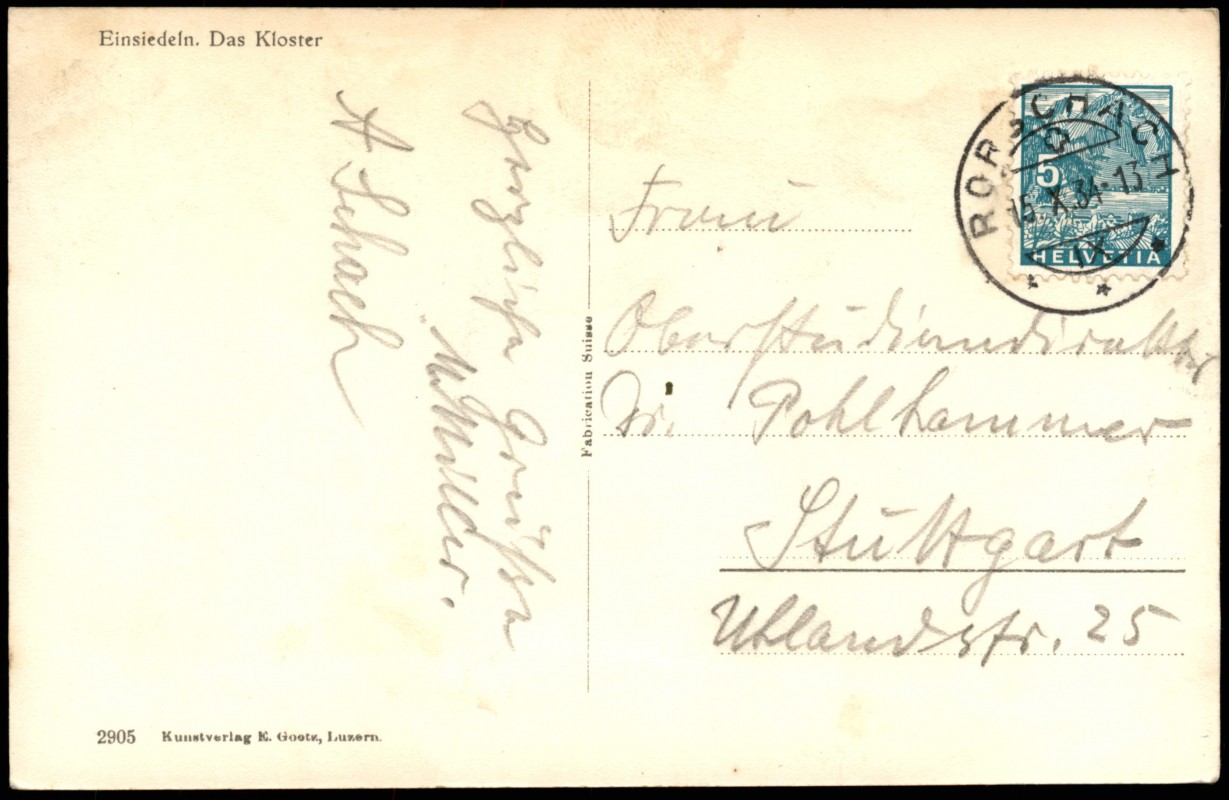 Einsiedeln. Das Kloster
Herzliche Grüsse
A Schach
Fabrication Suisse
RORSCHACH
15.X.34-13
IX
5
HELVETIA
Frau
Oberstudiendirektor
Dr. Pohlhammer
Stuttgart
Uhlandstr. 25
2905 Kunstverlag E. Goetz, Luzern.